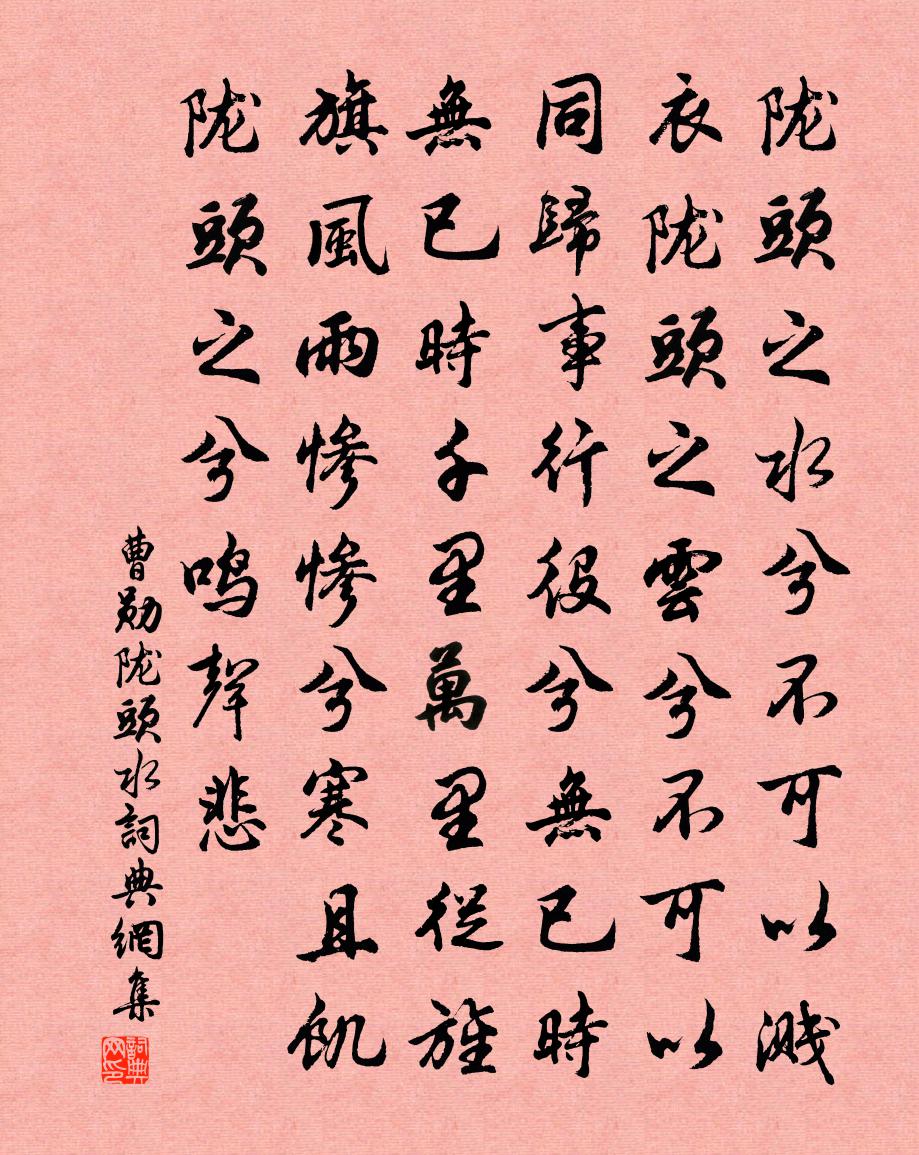 陇頭之水兮不可以溅
衣陇頭之雲兮不可以
同歸事行役兮無已時
無已時千里萬里從旌
旗風雨惨惨兮寒且飢
陇頭之兮鳴聲悲
曹勋陇頭水詞典網集
詞典网印